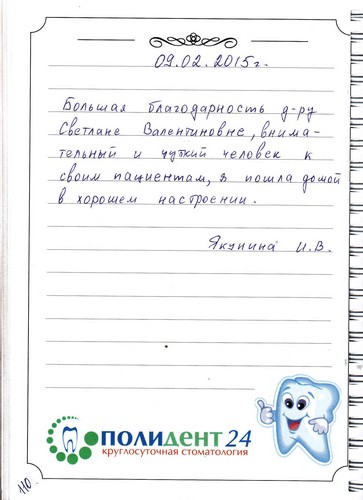 09.02.2015г.
Большая благодарность д-ру
Светлане Валентиновне, внима-
тельный и чуткий человек к
своим пациентам, я пошла домой
в хорошем настроении.
Якунина И.В.
ПОЛИДЕНТ 24
круглосуточная стоматология
110.